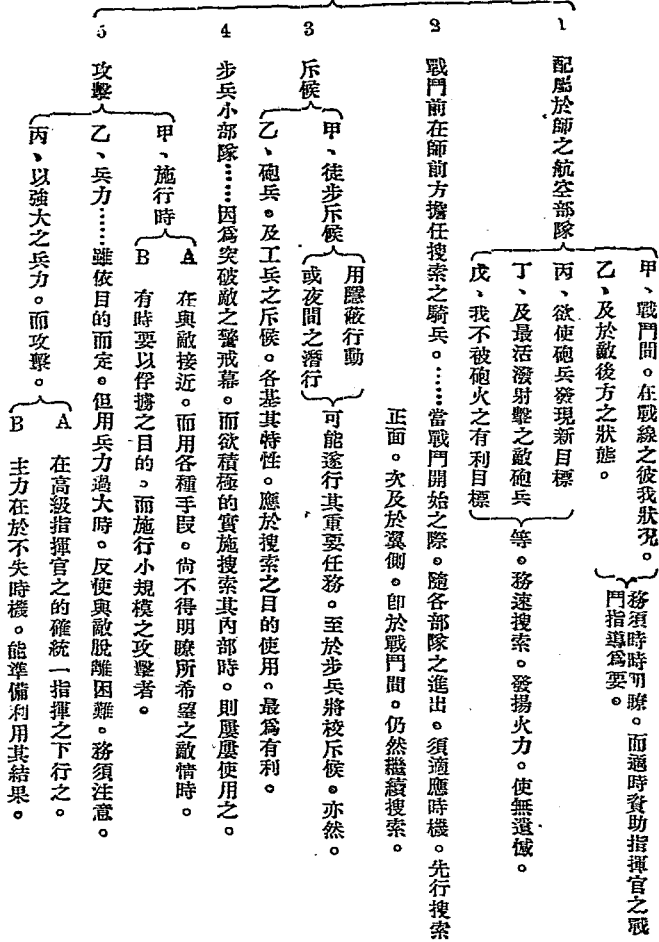 1 配屬於師之航空部隊
甲、戰鬥間。在戰線之彼我狀況。
乙、及於敵後方之狀態。
務須時時明瞭。而適時資助指揮官之戰
鬥指導爲要。
丙、欲使砲兵發現新目標
丁、及最活潑射擊之敵砲兵
戊、我不被砲火之有利目標
等。務速搜索。發揚火力。使無遺憾。
2 戰鬥前在師前方擔任搜索之騎兵。……當戰鬥開始之際。隨各部隊之進出。須適應時機。先行搜索
正面。次及於翼側。卽於戰鬥間。仍然繼續搜索。
3 斥候
甲、徒步斥候
用隱蔽行動
或夜間之潛行
可能遂行其重要任務。至於步兵將校斥候。亦然。
乙、砲兵。及工兵之斥候。各基其特性。應於搜索之目的使用。最爲有利。
4 步兵小部隊……因爲突破敵之警戒幕。而欲積極的實施搜索其內部時。則屢屢使用之。
5 攻擊
甲、施行時
A 在與敵接近。而用各種手段。尙不得明瞭所希望之敵情時。
B 有時要以俘擄之目的。而施行小規模之攻擊者。
乙、兵力……雖依目的而定。但用兵力過大時。反使與敵脫離困難。務須注意。
丙、以強大之兵力。而攻擊。
A 在高級指揮官之的確統一指揮之下行之。
B 主力在於不失時機。能準備利用其結果。